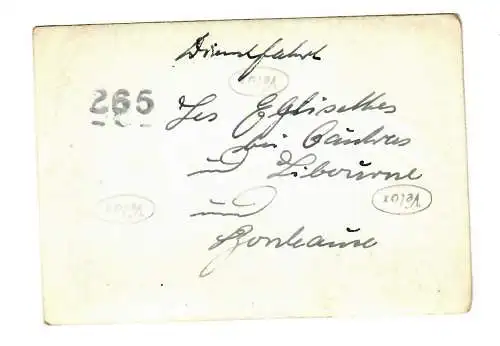 Dienstfahrt
Velox
265
Les Eglisottes
bei Coutras
und Libourne
Velox
Velox
und
Bordeaux